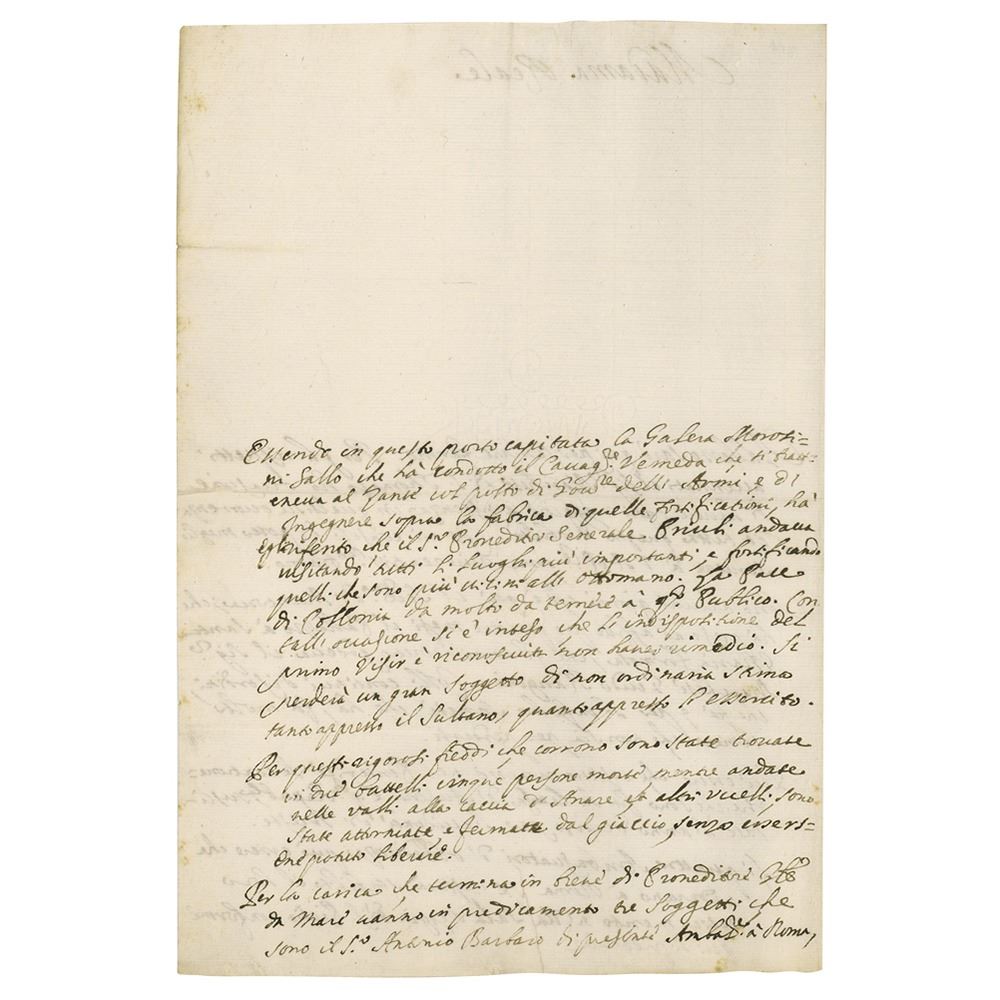 Essendo in questo porto capitata la Galera Morosi=
ni Sallo che hà condotto il Cavag.re Verneda che si tratt=
eneva al Zante col posto di Gov.re delli Armi, e di
Ingegnere sopra la fabrica di quelle fortificationi, hà
che il S.r Proveditor Generale Priuli andava
visitando tutti li luoghi più importanti, e fortificando
quelli che sono più vicini alli Ottomano. La Pace
di Pollonia dà molto da temere à Publico. Con
tall' occasione si è inteso che l'indispositione del
primo Visir è riconosciuta non haver rimedio. Si
perderà un gran soggetto di non ordinaria stima
tanto appresso il Sultano, quanto appresso l'essercito.
Per questi rigorosi freddi che corrono sono state trovate
in due battelli cinque persone morte mentre andate
nelle valli alla caccia d'Anare et altri uccelli, sono
state attorniate, e fermate dal giaccio, senza essers=
ene potuto liberare.
Per la carica che termina in breve di Proveditore
da Mare vanno in predicamento tre soggetti che
sono il S.r Antonio Barbaro di presente Ambad.r à Roma,